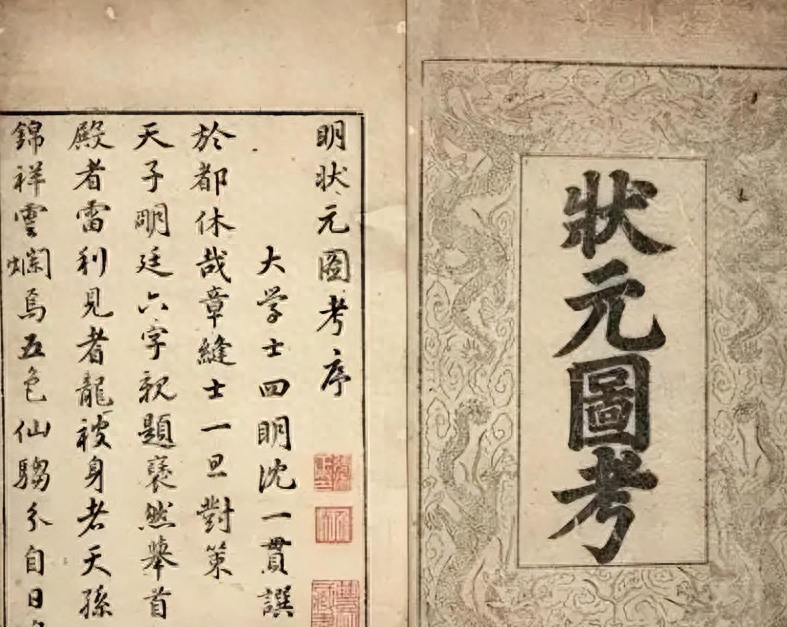 狀元圖考
明狀元圖考序
大学士四明沈一貫譔
於都休哉章縫士一旦對策
天子明廷六字親題褎然舉首
殿者雷利見者龍被身者天孫
錦祥雲爛焉五色仙騶分自日